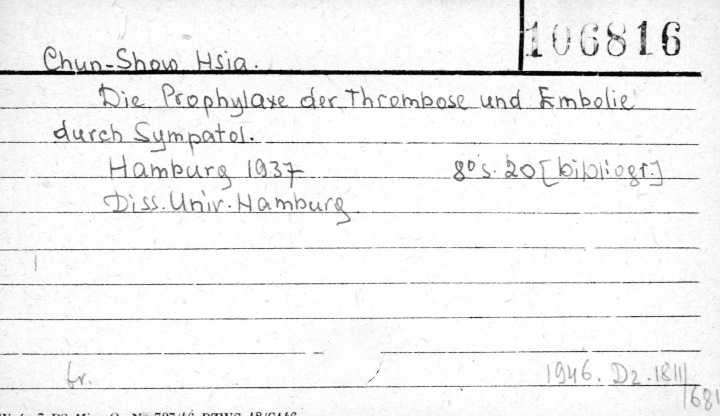 106816
Chun-Show Hsia.
Die Prophylaxe der Thrombose und Embolie
durch Sympatol.
Hamburg 1937 8° s. 20 [bibliogr.]
Diss. Univ. Hamburg
br. 1946. Dz. 1811/
681